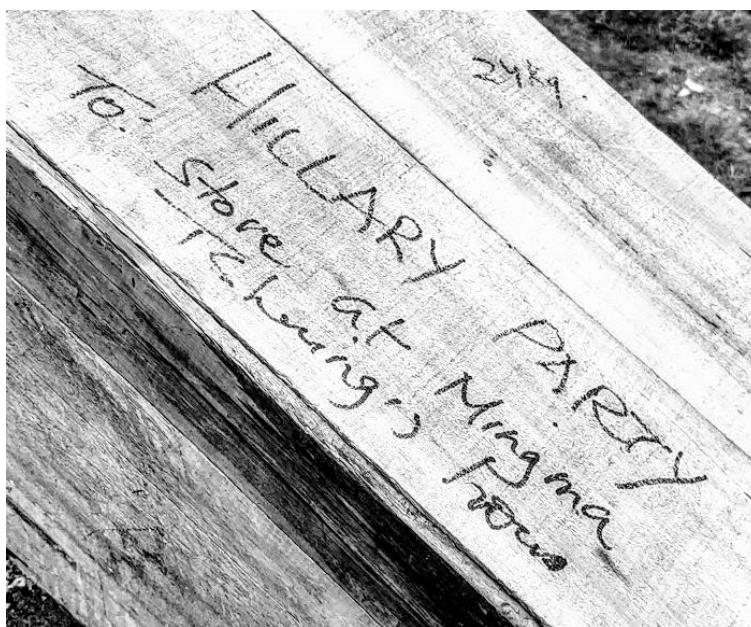 24kg.
HILLARY PARTY
To: Store at Mingma
Tshering's house